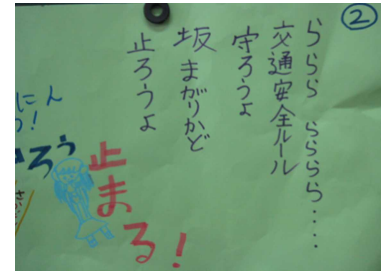 ②
ららら らららら‥‥
交通安全ルール
守ろうよ
坂 まがりかど
止ろうよ
止まる!
にん
ろう